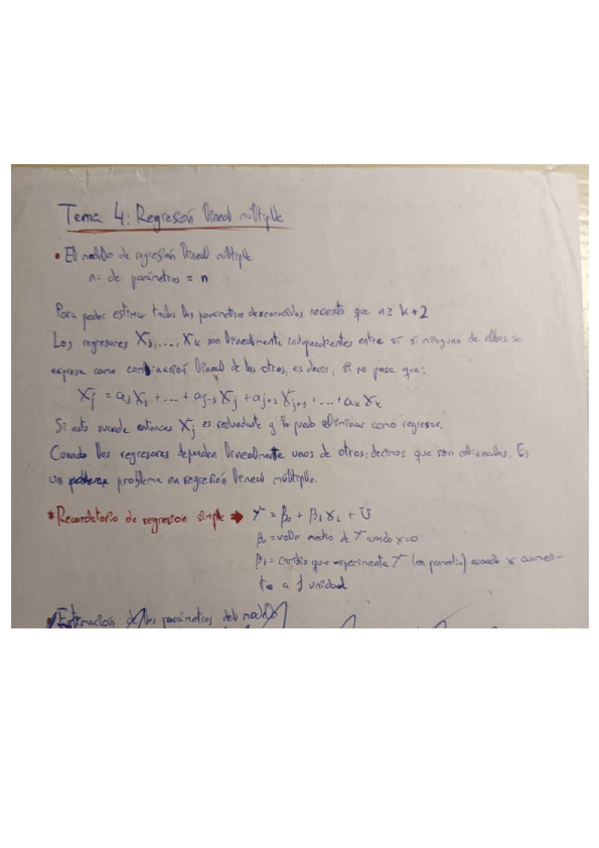 Tema 4: Regresión lineal múltiple
• El modelo de regresión lineal múltiple
nº de parámetros = n
Para poder estimar todos los parámetros desconocidos necesito que n ≥ k+2
Los regresores Xj,...,Xk son linealmente independientes entre sí si ninguno de ellos se
expresa como combinación lineal de los otros, es decir, si no pasa que:
Xj = a1X1 + ... + aj-1Xj + aj+1Xj+1 + ... + akXk
Si esto sucede entonces Xj es redundante y lo puedo eliminar como regresor.
Cuando los regresores dependen linealmente unos de otros, decimos que son colineales. Es
un problema en regresión lineal múltiple.
* Recordatorio de regresión simple → Y = β0 + β1X1 + U
β0 = valor medio de Y cuando x=0
β1 = cambio que experimenta Y (en promedio) cuando x aumen-
ta 1 unidad
Estimación de los parámetros del modelo